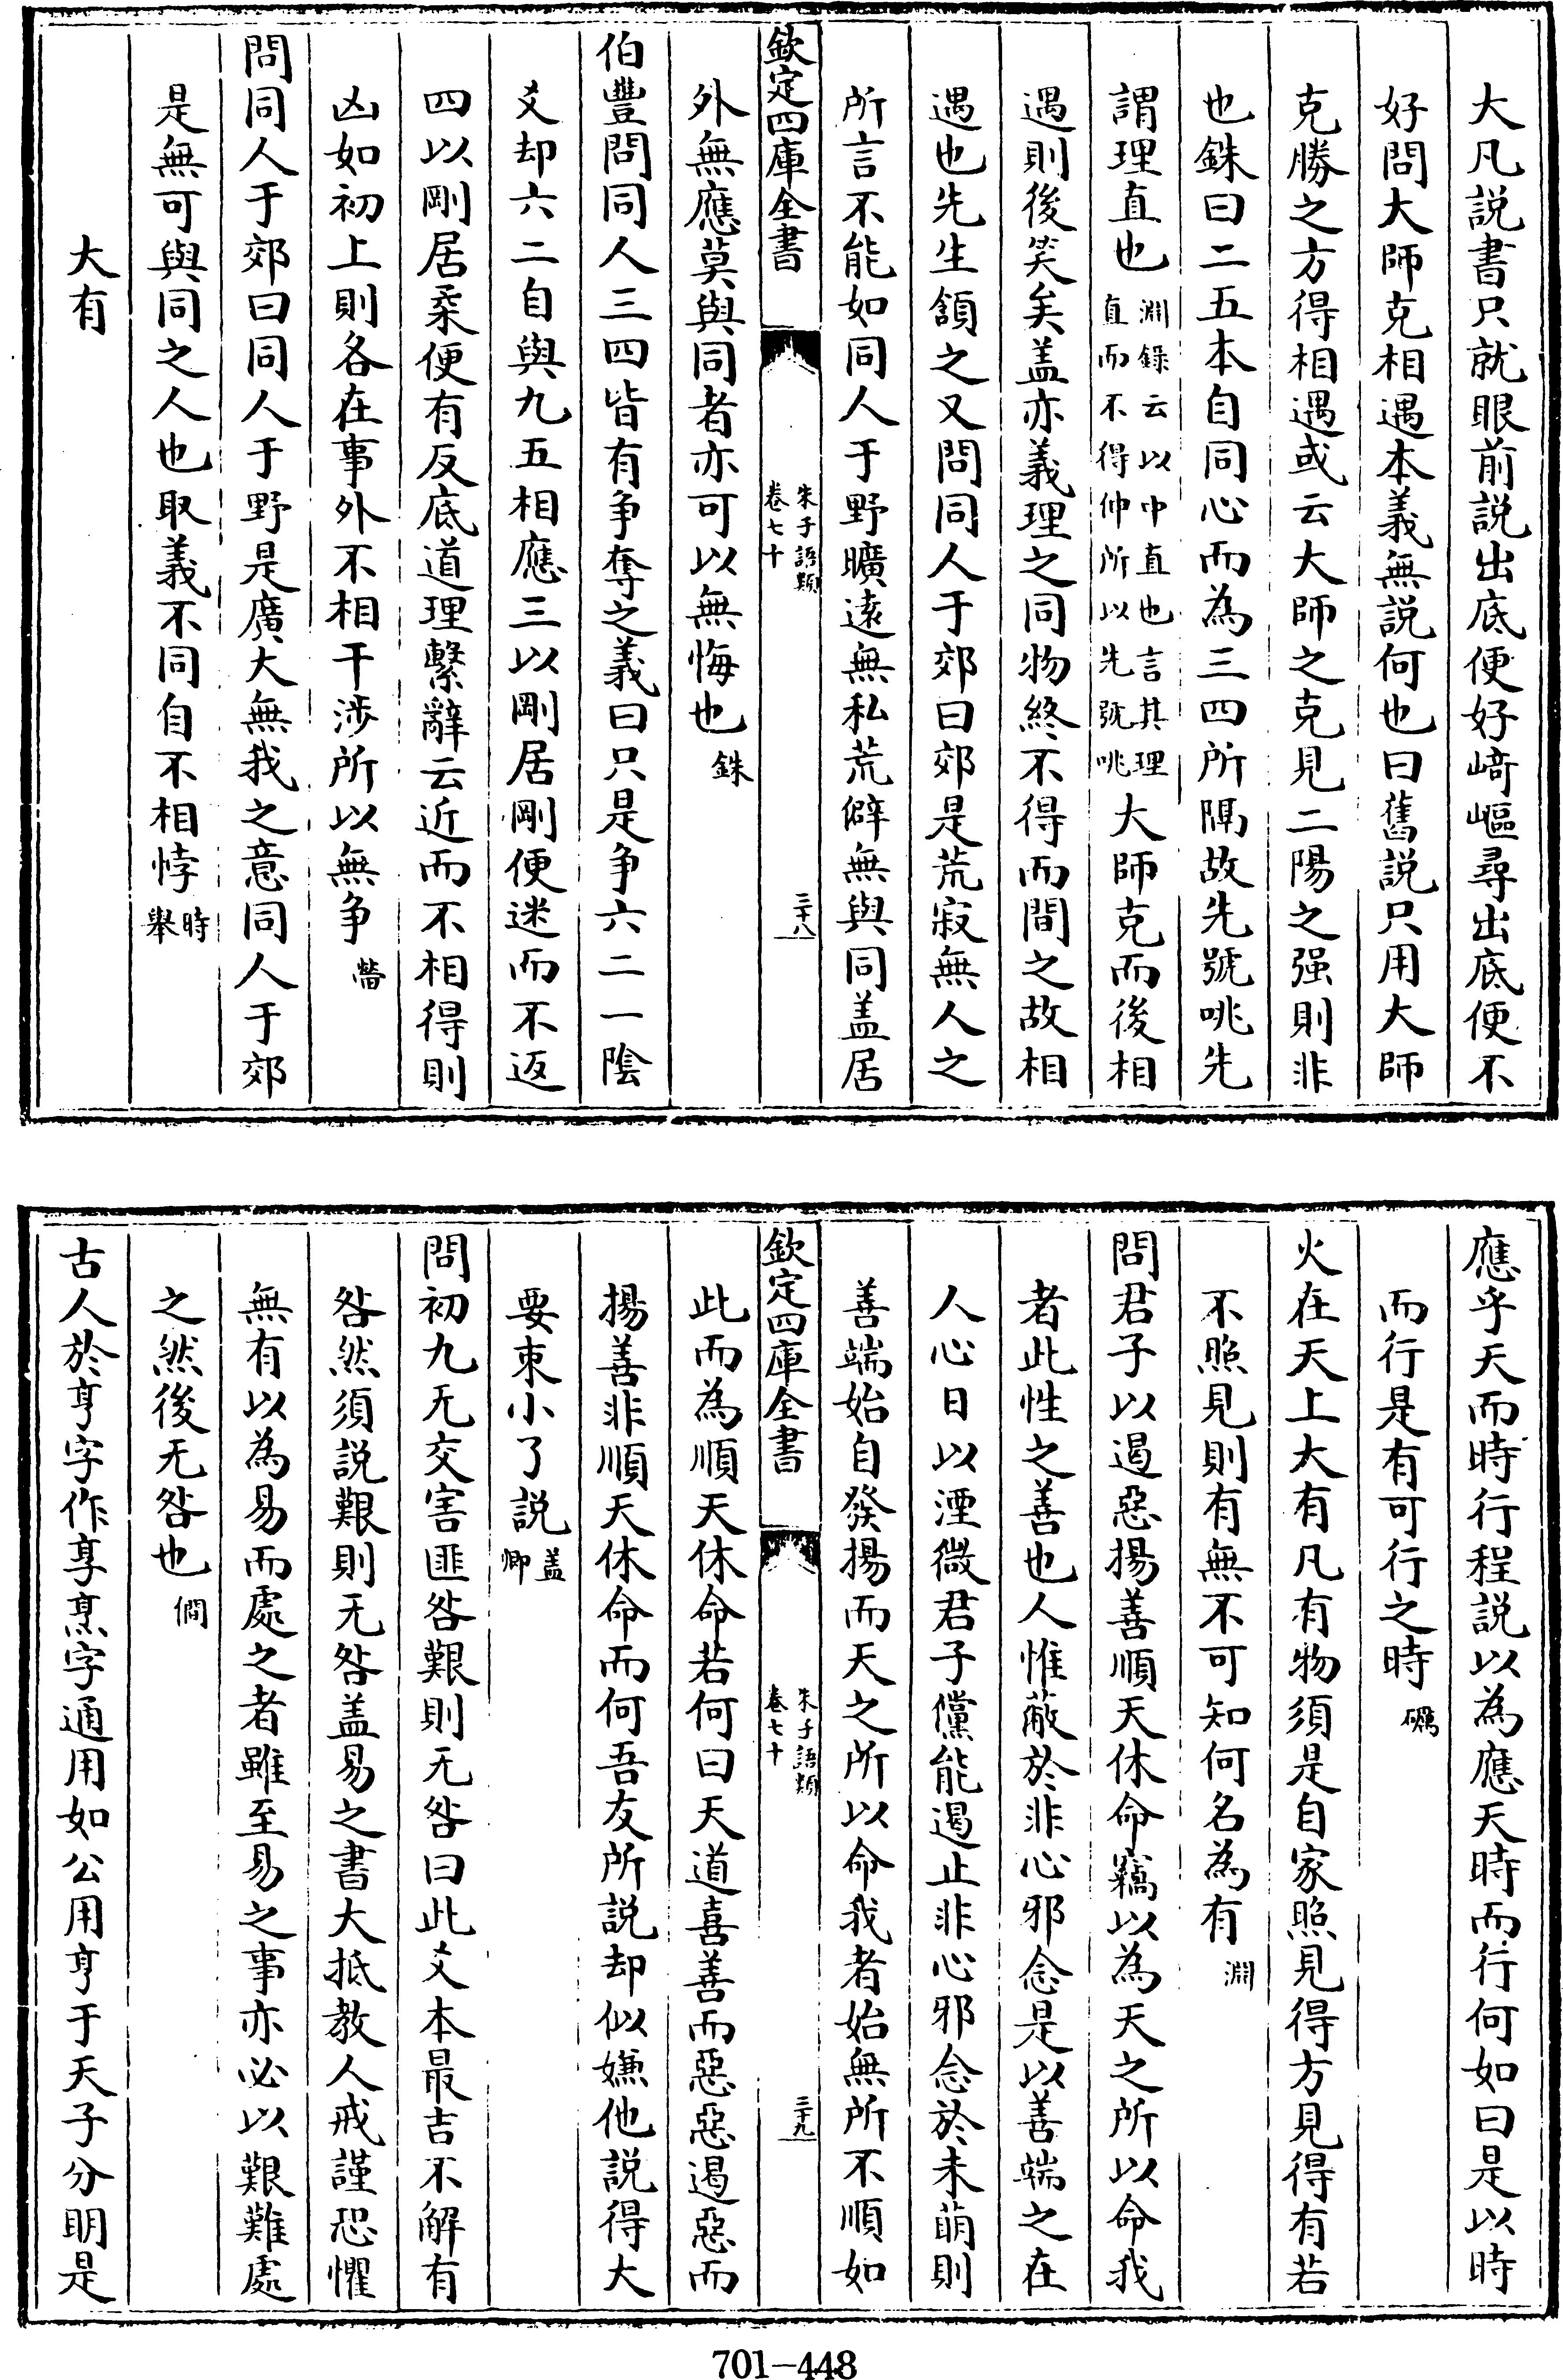 大凡説書只就眼前説出底便好﨑嶇尋出底便不
好問大師克相遇本義無説何也曰舊説只用大師
克勝之方得相遇或云大師之克見二陽之强則非
也銖曰二五本自同心而為三四所隔故先號咷先
謂理直也淵録云以中直也言其理直而不得伸所以先號咷大師克而後相
遇則後笑矣盖亦義理之同物終不得而間之故相
遇也先生頷之又問同人于郊曰郊是荒寂無人之
所言不能如同人于野曠逺無私荒僻無與同盖居
欽定四庫全書 朱子語類卷七十 三十八
外無應莫與同者亦可以無悔也銖
伯豐問同人三四皆有争奪之義曰只是争六二一陰
爻却六二自與九五相應三以剛居剛便迷而不返
四以剛居柔便有反底道理繫辭云近而不相得則
凶如初上則各在事外不相干涉所以無争㽦
問同人于郊曰同人于野是廣大無我之意同人于郊
是無可與同之人也取義不同自不相悖時舉
大有
應乎天而時行程説以為應天時而行何如曰是以時
而行是有可行之時礪
火在天上大有凡有物須是自家照見得方見得有若
不照見則有無不可知何名為有淵
問君子以遏惡揚善順天休命竊以為天之所以命我
者此性之善也人惟蔽於非心邪念是以善端之在
人心日以湮微君子儻能遏止非心邪念於未萌則
善端始自發揚而天之所以命我者始無所不順如
欽定四庫全書 朱子語類卷七十 三十九
此而為順天休命若何曰天道喜善而惡惡遏惡而
揚善非順天休命而何吾友所説却似嫌他説得大
要束小了説盖卿
問初九无交害匪咎艱則无咎曰此爻本最吉不解有
咎然須説艱則无咎盖易之書大抵教人戒謹恐懼
無有以為易而處之者雖至易之事亦必以艱難處
之然後无咎也僩
古人於亨字作享烹字通用如公用亨于天子分明是
701-448